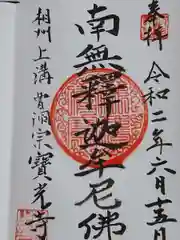 奉拝
令和二年六月十五日
南無釋迦牟尼佛
相州上溝
曹洞宗寶光寺